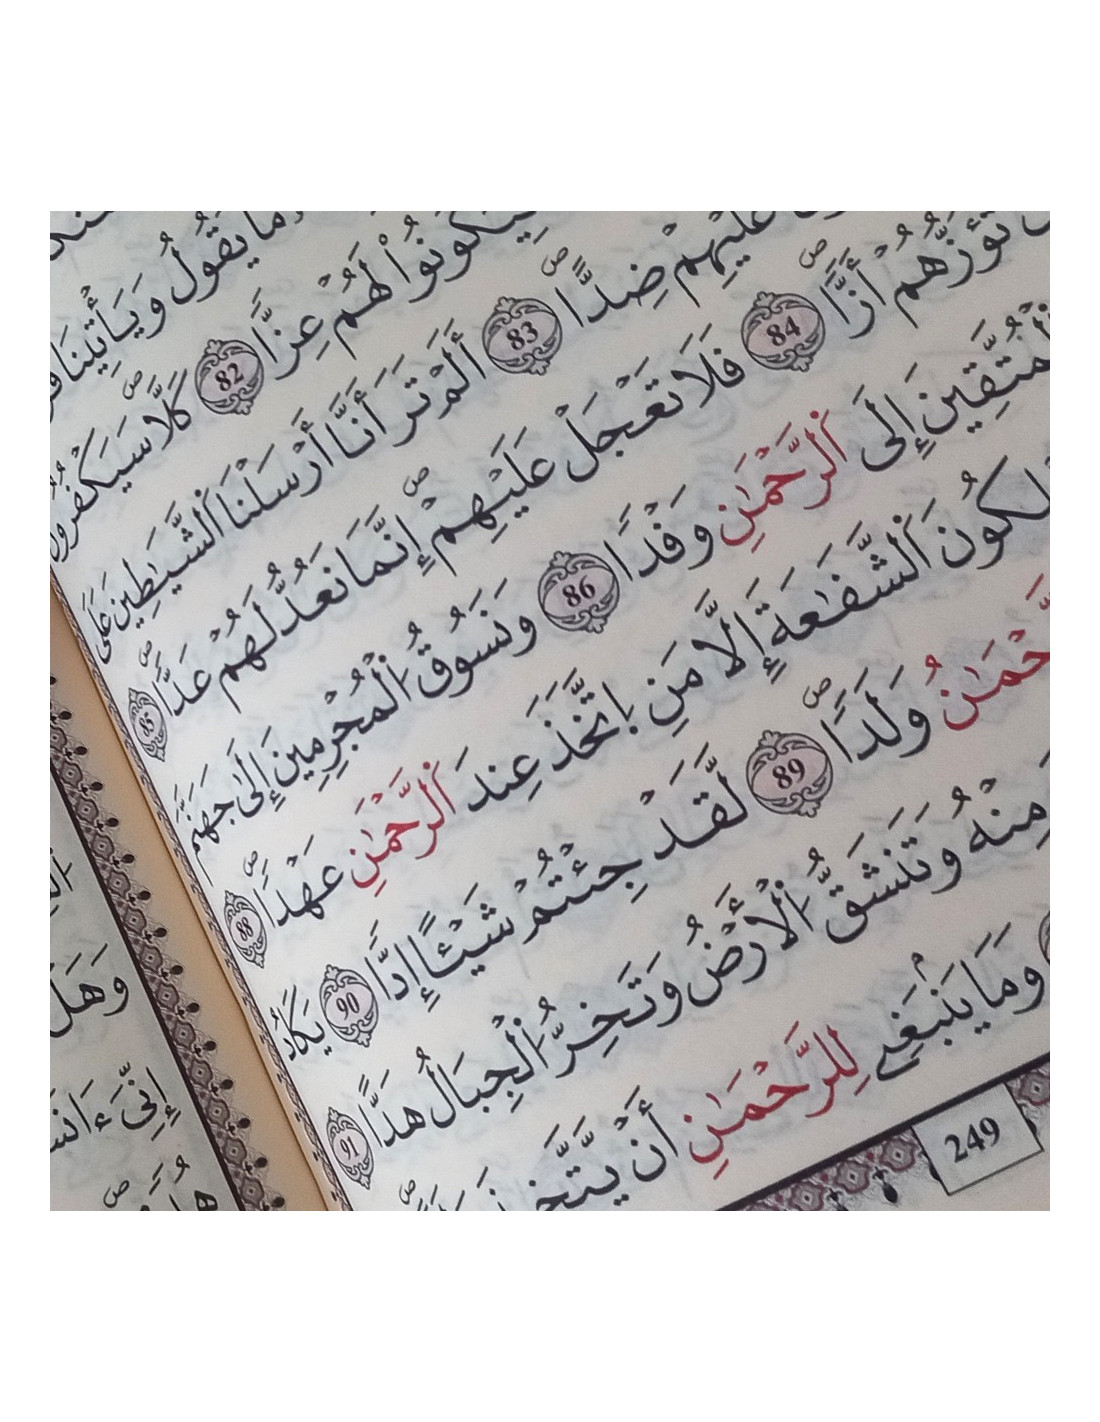 مَا يَقُولُ وَيَأْتِينَا
لِّيَكُونُواْ لَهُمْ عِزًّا 82 كَلَّا سَيَكْفُرُونَ
عَلَيْهِمْ ضِدًّا 83 أَلَمْ تَرَ أَنَّا أَرْسَلْنَا اَ۬لشَّيَٰطِينَ عَلَى
تَؤُزُّهُمُۥٓ أَزًّا 84 فَلَا تَعْجَلْ عَلَيْهِمُۥٓ إِنَّمَا نَعُدُّ لَهُمْ عَدًّا 85
اَ۬لْمُتَّقِينَ إِلَى اَ۬لرَّحْمَٰنِ وَفْدًا 86 وَنَسُوقُ اُ۬لْمُجْرِمِينَ إِلَىٰ جَهَنَّمَ
اَ۬لشَّفَٰعَةَ إِلَّا مَنِ اِ۪تَّخَذَ عِندَ اَ۬لرَّحْمَٰنِ عَهْدًا 88
اَ۬لرَّحْمَٰنُ وَلَدًا 89 لَّقَدْ جِئْتُمْ شَيْـًٔا إِدًّا 90 يَكَادُ
مِنْهُ وَتَنشَقُّ اُ۬لْأَرْضُ وَتَخِرُّ اُ۬لْجِبَالُ هَدًّا 91
وَمَا يَنۢبَغِے لِلرَّحْمَٰنِ أَنْ يَّتَّخِذَ
249
وَهَلْ
إِنِّيَ